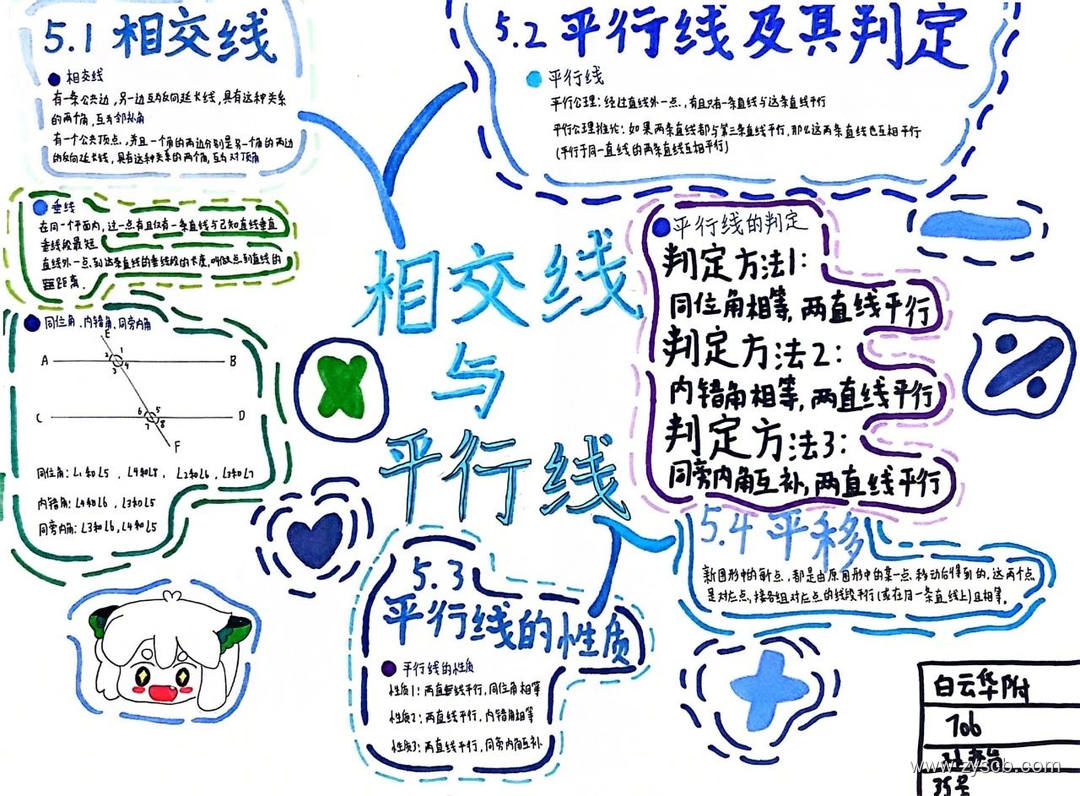 5.1 相交线
相交线
有一条公共边,另一边互为反向延长线,具有这种关系
的两个角,互为邻补角
有一个公共顶点,并且一个角的两边分别是另一个角的两边
的反向延长线,具有这种关系的两个角,互为对顶角
垂线
在同一个平面内,过一点有且仅有一条直线与已知直线垂直
垂线段最短
直线外一点到这条直线的垂线段的长度,叫做点到直线的
距离.
同位角、内错角、同旁内角
E
A
2 1
3 4
B
C
6 5
7 8
D
F
同位角:∠1和∠5 ,∠4和∠8 ,∠2和∠6 ,∠3和∠7
内错角:∠4和∠6 ,∠3和∠5
同旁内角:∠3和∠6,∠4和∠5
相交线
与
平行线
5.2 平行线及其判定
平行线
平行公理:经过直线外一点,有且只有一条直线与这条直线平行
平行公理推论:如果两条直线都与第三条直线平行,那么这两条直线也互相平行
(平行于同一直线的两条直线互相平行)
平行线的判定
判定方法1:
同位角相等,两直线平行
判定方法2:
内错角相等,两直线平行
判定方法3:
同旁内角互补,两直线平行
5.3
平行线的性质
平行线的性质
性质1:两直线平行,同位角相等
性质2:两直线平行,内错角相等
性质3:两直线平行,同旁内角互补
5.4 平移
新图形中的每一点,都是由原图形中的某一点移动后得到的,这两个点
是对应点,接各组对应点的线段平行(或在同一条直线上)且相等.
白云华附
706
35号
www.zyscb.com